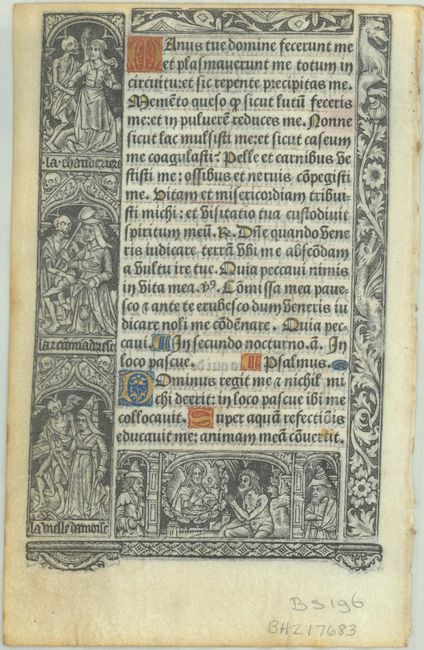 Manus tue domine fecerunt me
et plasmaverunt me totum in
circuitu: et sic repente precipitas me.
Memēto queso ꝙ sicut lutū feceris
me: et in pulverē reduces me. Nonne
sicut lac mulsisti me: et sicut caseum
me coagulasti: Pelle et carnibus ve
stisti me: ossibus et nervis cōpegisti
me. Vitam et misericordiam tribui-
sti michi: et visitatio tua custodivit
spiritum meū. R. Dn̄e quando vene
ris iudicare terrā vbi me abscōdam
a vultu ire tue. Quia peccavi nimis
in vita mea. v̾. Cōmissa mea paue-
sco ⁊ ante te erubesco dum veneris iu
dicare noli me cōdēnare. Quia pec-
caui. In secundo nocturno. ā. In
loco pascue. Psalmus.
Dominus regit me ⁊ nichil mi
chi deerit: in loco pascue ibi me
collocauit. Super aquā refectiōis
educauit me: animam meā cōuertit.
la chanberiere
la vielle damoise
BS196
BHZ17683